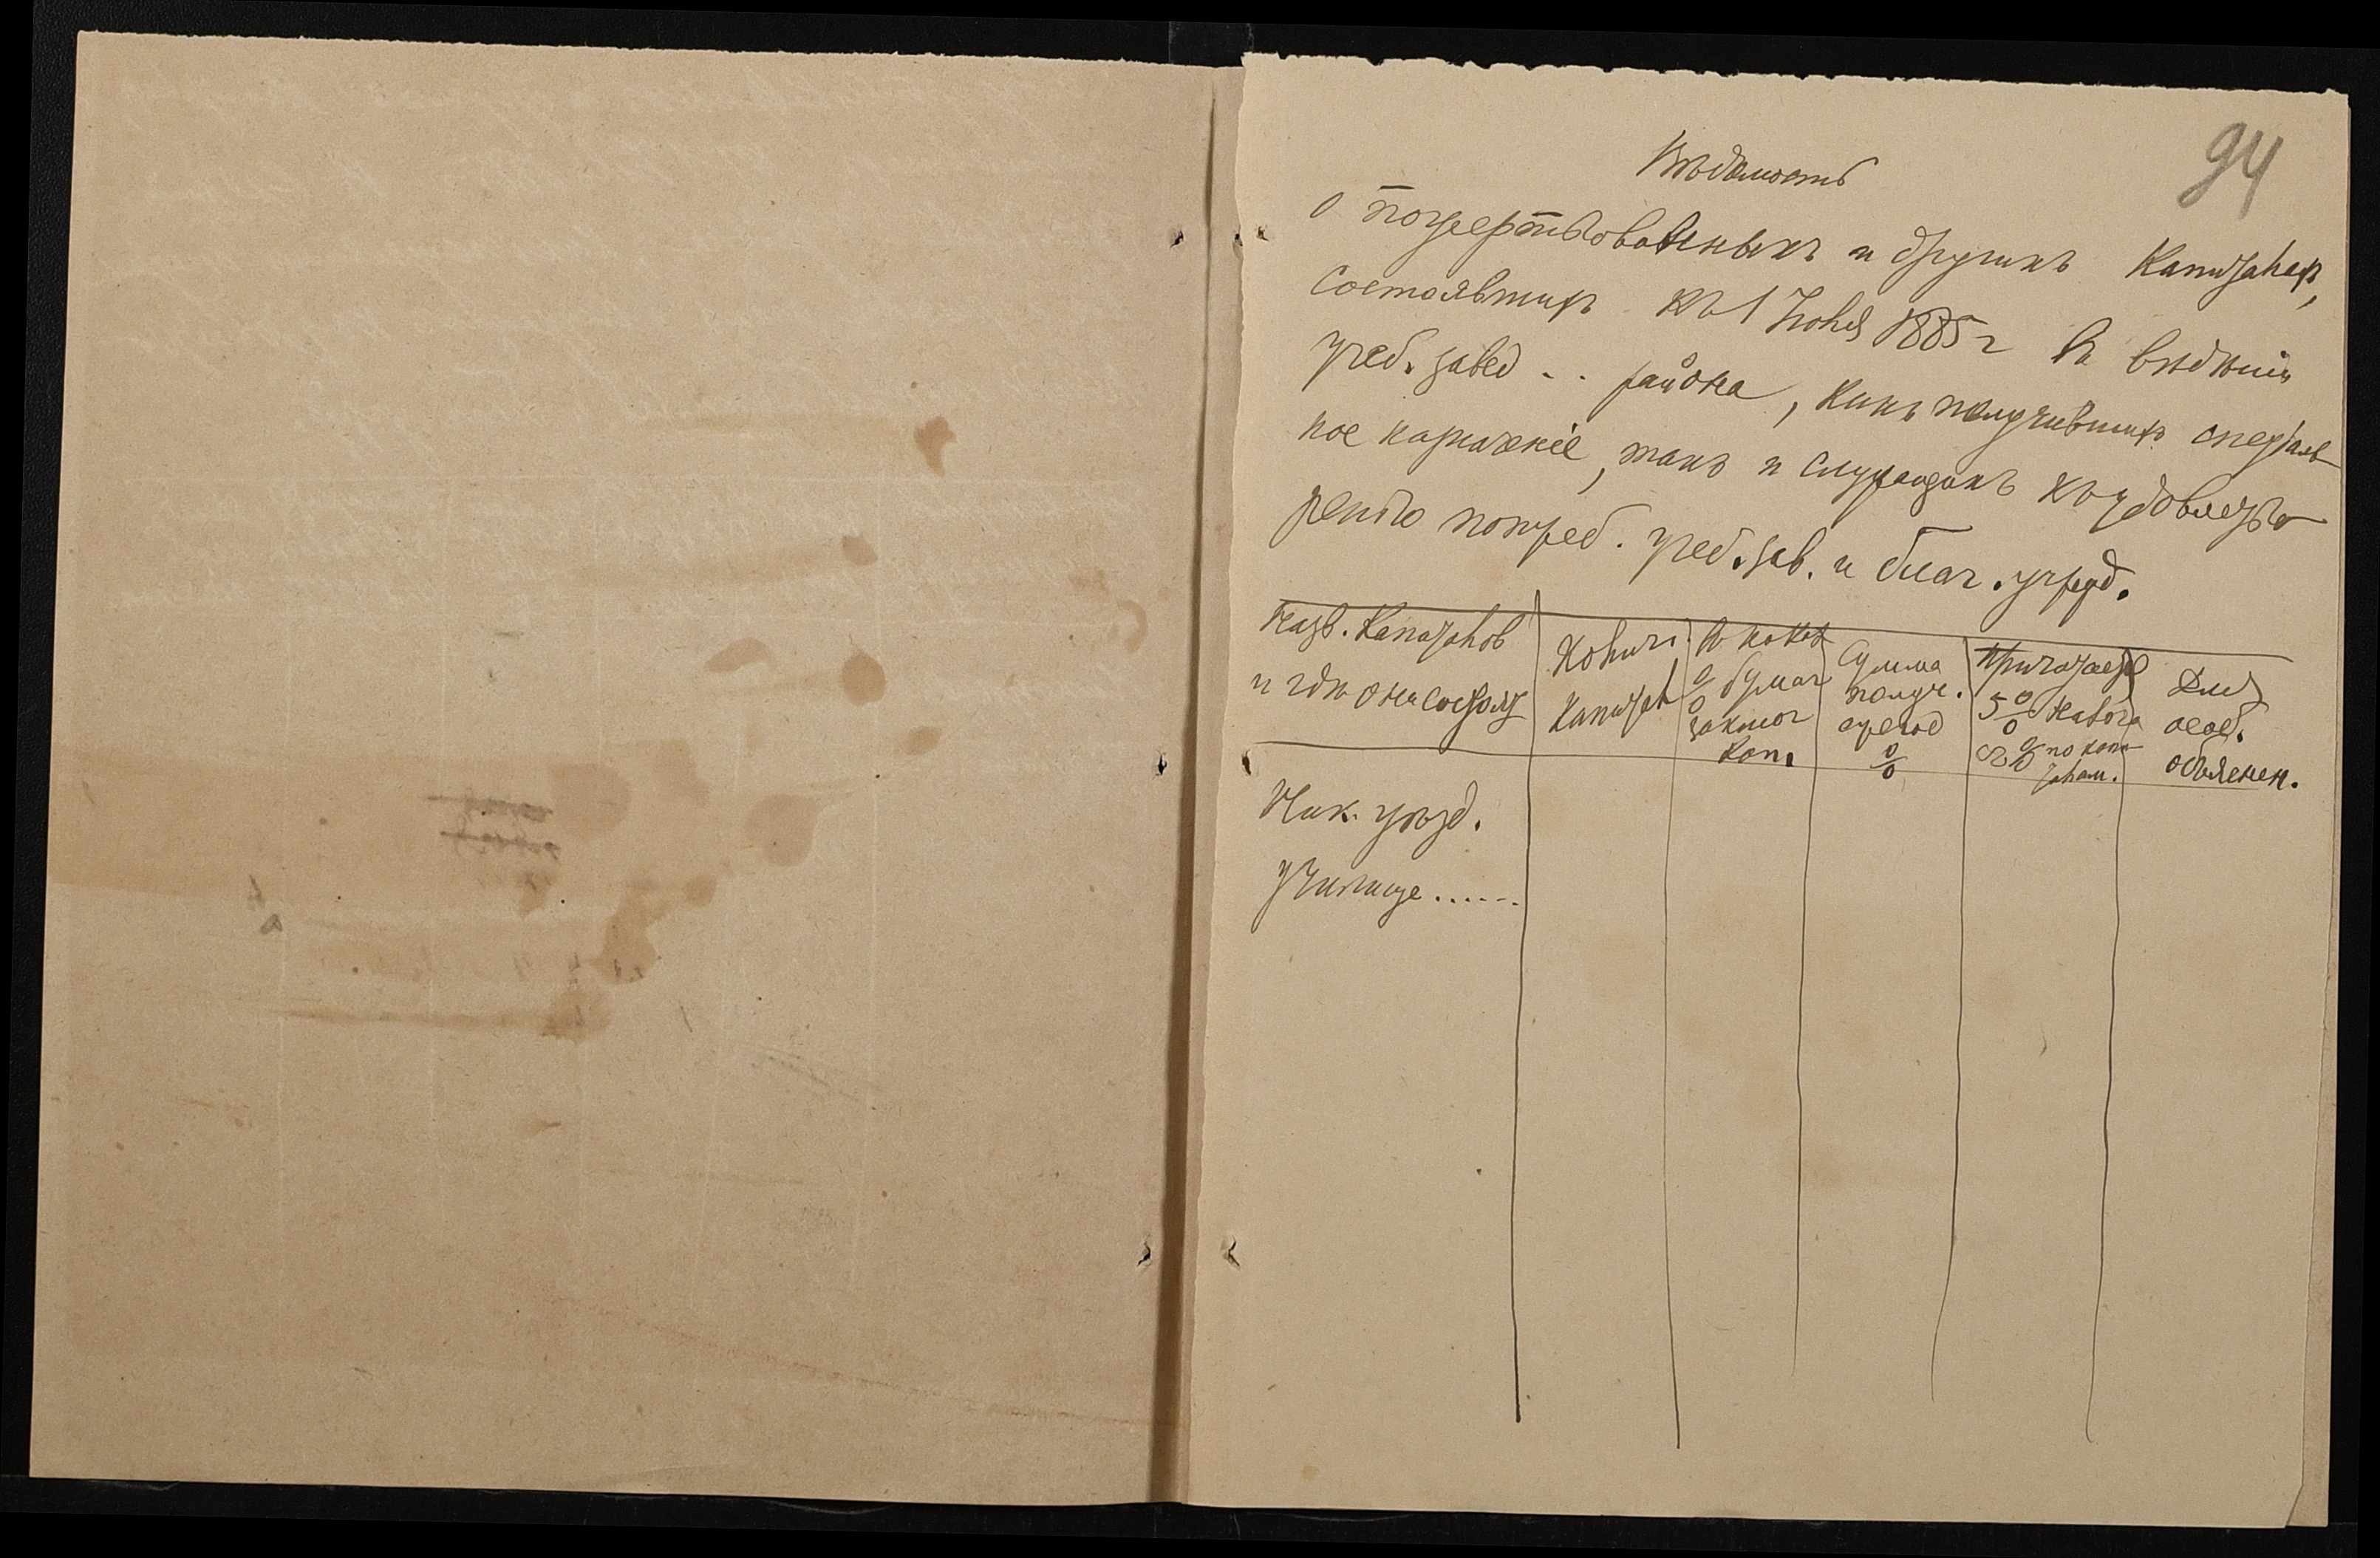 94
Вѣдомость
о пожертвованныхъ и другихъ Капиталахъ,
состоявшихъ къ 1 Іюля 1885 г въ вѣдѣніи
учеб. завед . . района, какъ получившихъ спеціаль
ное назначеніе, такъ и служащихъ къ удовлетво
ренію потреб. учеб. зав. и благ. учрежд.
Назв. Капиталовъ
и гдѣ они состоятъ
Колич.
Капитал
Въ каких
% бумаг
заключ
кап.
Сумма
получ.
ежегод
%
Причитается
5% налога
съ % по капи
талам.
Для
особ.
объяснен.
Ник. уѣзд.
училище ......